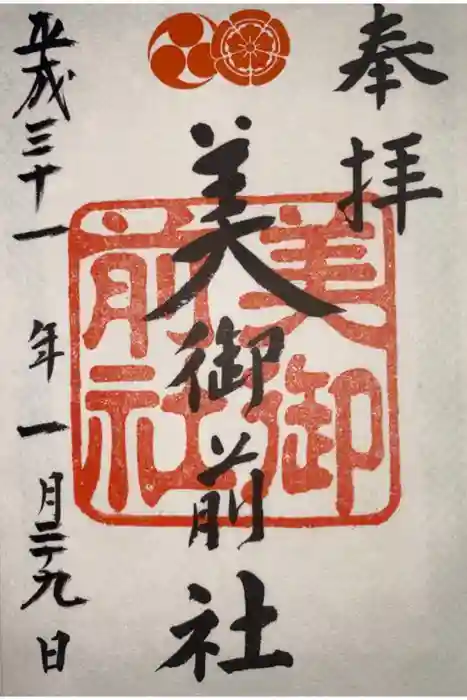 奉拝
美御前社
美御前社
平成三十一年一月二十九日